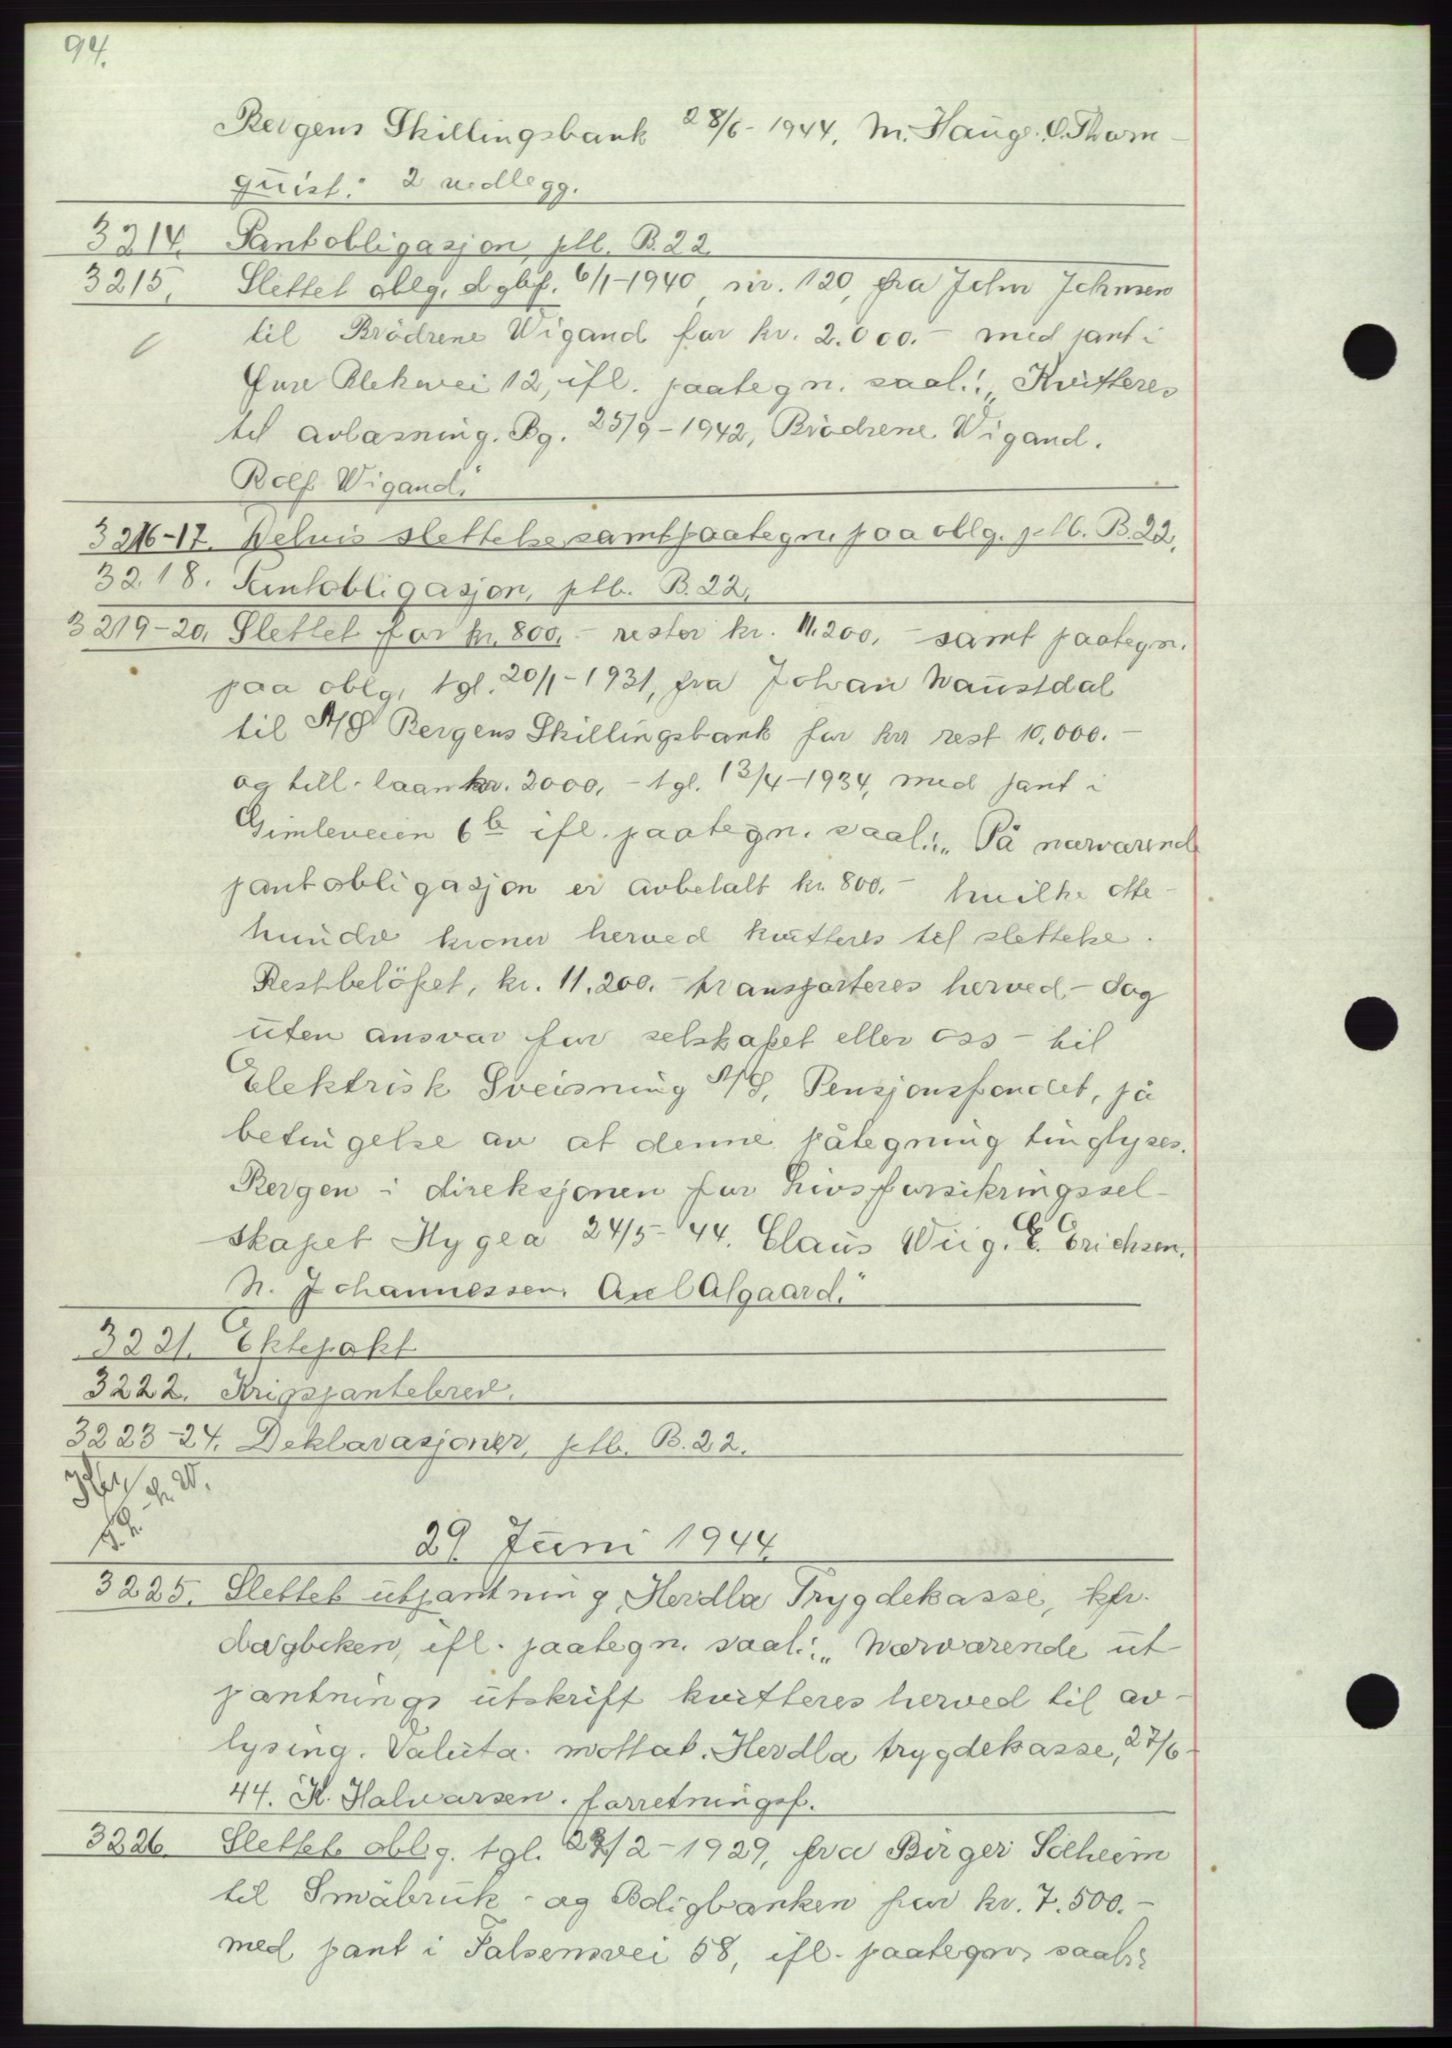 94.
Bergens Skillingsbank 28/6-1944. M. Haug. O. Thorn-
quist." 2 vedlegg.
3214. Pantobligasjon, ptb. B.22.
3215. Slettet oblg. dgbf. 6/1-1940, nr. 120, fra John Johnsen
til Brödrene Wigand for kr. 2.000.- med pant i
Ivar 12, ifl. paategn. saal.: "Kvitteres
til avlæsning. Bg. 25/9-1942, Brödrene Wigand.
Rolf Wigand."
3216-17. Delvis slettelse samt paategn. paa oblg. ptb. B.22.
3218. Pantobligasjon, ptb. B.22.
3219-20. Slettet for kr. 800.- rester kr. 11.200.- samt paategn.
paa oblg. tgl. 20/1-1931, fra Johan Naustdal
til A/S Bergens Skillingsbank for kr. rest 10.000.-
og till. laan kr. 2000.- tgl. 13/4-1934, med pant i
Gimleveien 6b ifl. paategn. saal.: "På nærværende
pantobligasjon er avbetalt kr. 800.- hvilke otte-
hundre kroner herved kvitteres til slettelse.
Restbelöpet, kr. 11.200.- transporteres herved - dog
uten ansvar for selskapet eller oss - til
Elektrisk Sveisning A/S, Pensjonsfondet, på
betingelse av at denne påtegning tinglyses.
Bergen i direksjonen for Livsforsikringssel-
skapet Hygea 24/5-44. Claus Wiig. C. Erichsen.
N. Johannessen. Axel Algaard."
3221. Ektepakt
3222. Krigspantebrev.
3223-24. Deklarasjoner, ptb. B.22.
29. Juni 1944.
3225. Slettet utpantning, Herdla Trygdekasse, kfr.
dagboken, ifl. paategn. saal.: "Nærværende ut-
pantnings utskrift kvitteres herved til av-
lysing. Valuta mottat. Herdla trygdekasse, 27/6-
44. K. Halvarsen. forretningsf.
3226. Slettet oblg. tgl. /2-1929, fra Birger Solheim
til Småbruk- og Boligbanken for kr. 7.500.-
med pant i Falsensvei 58, ifl. paategn. saal.: